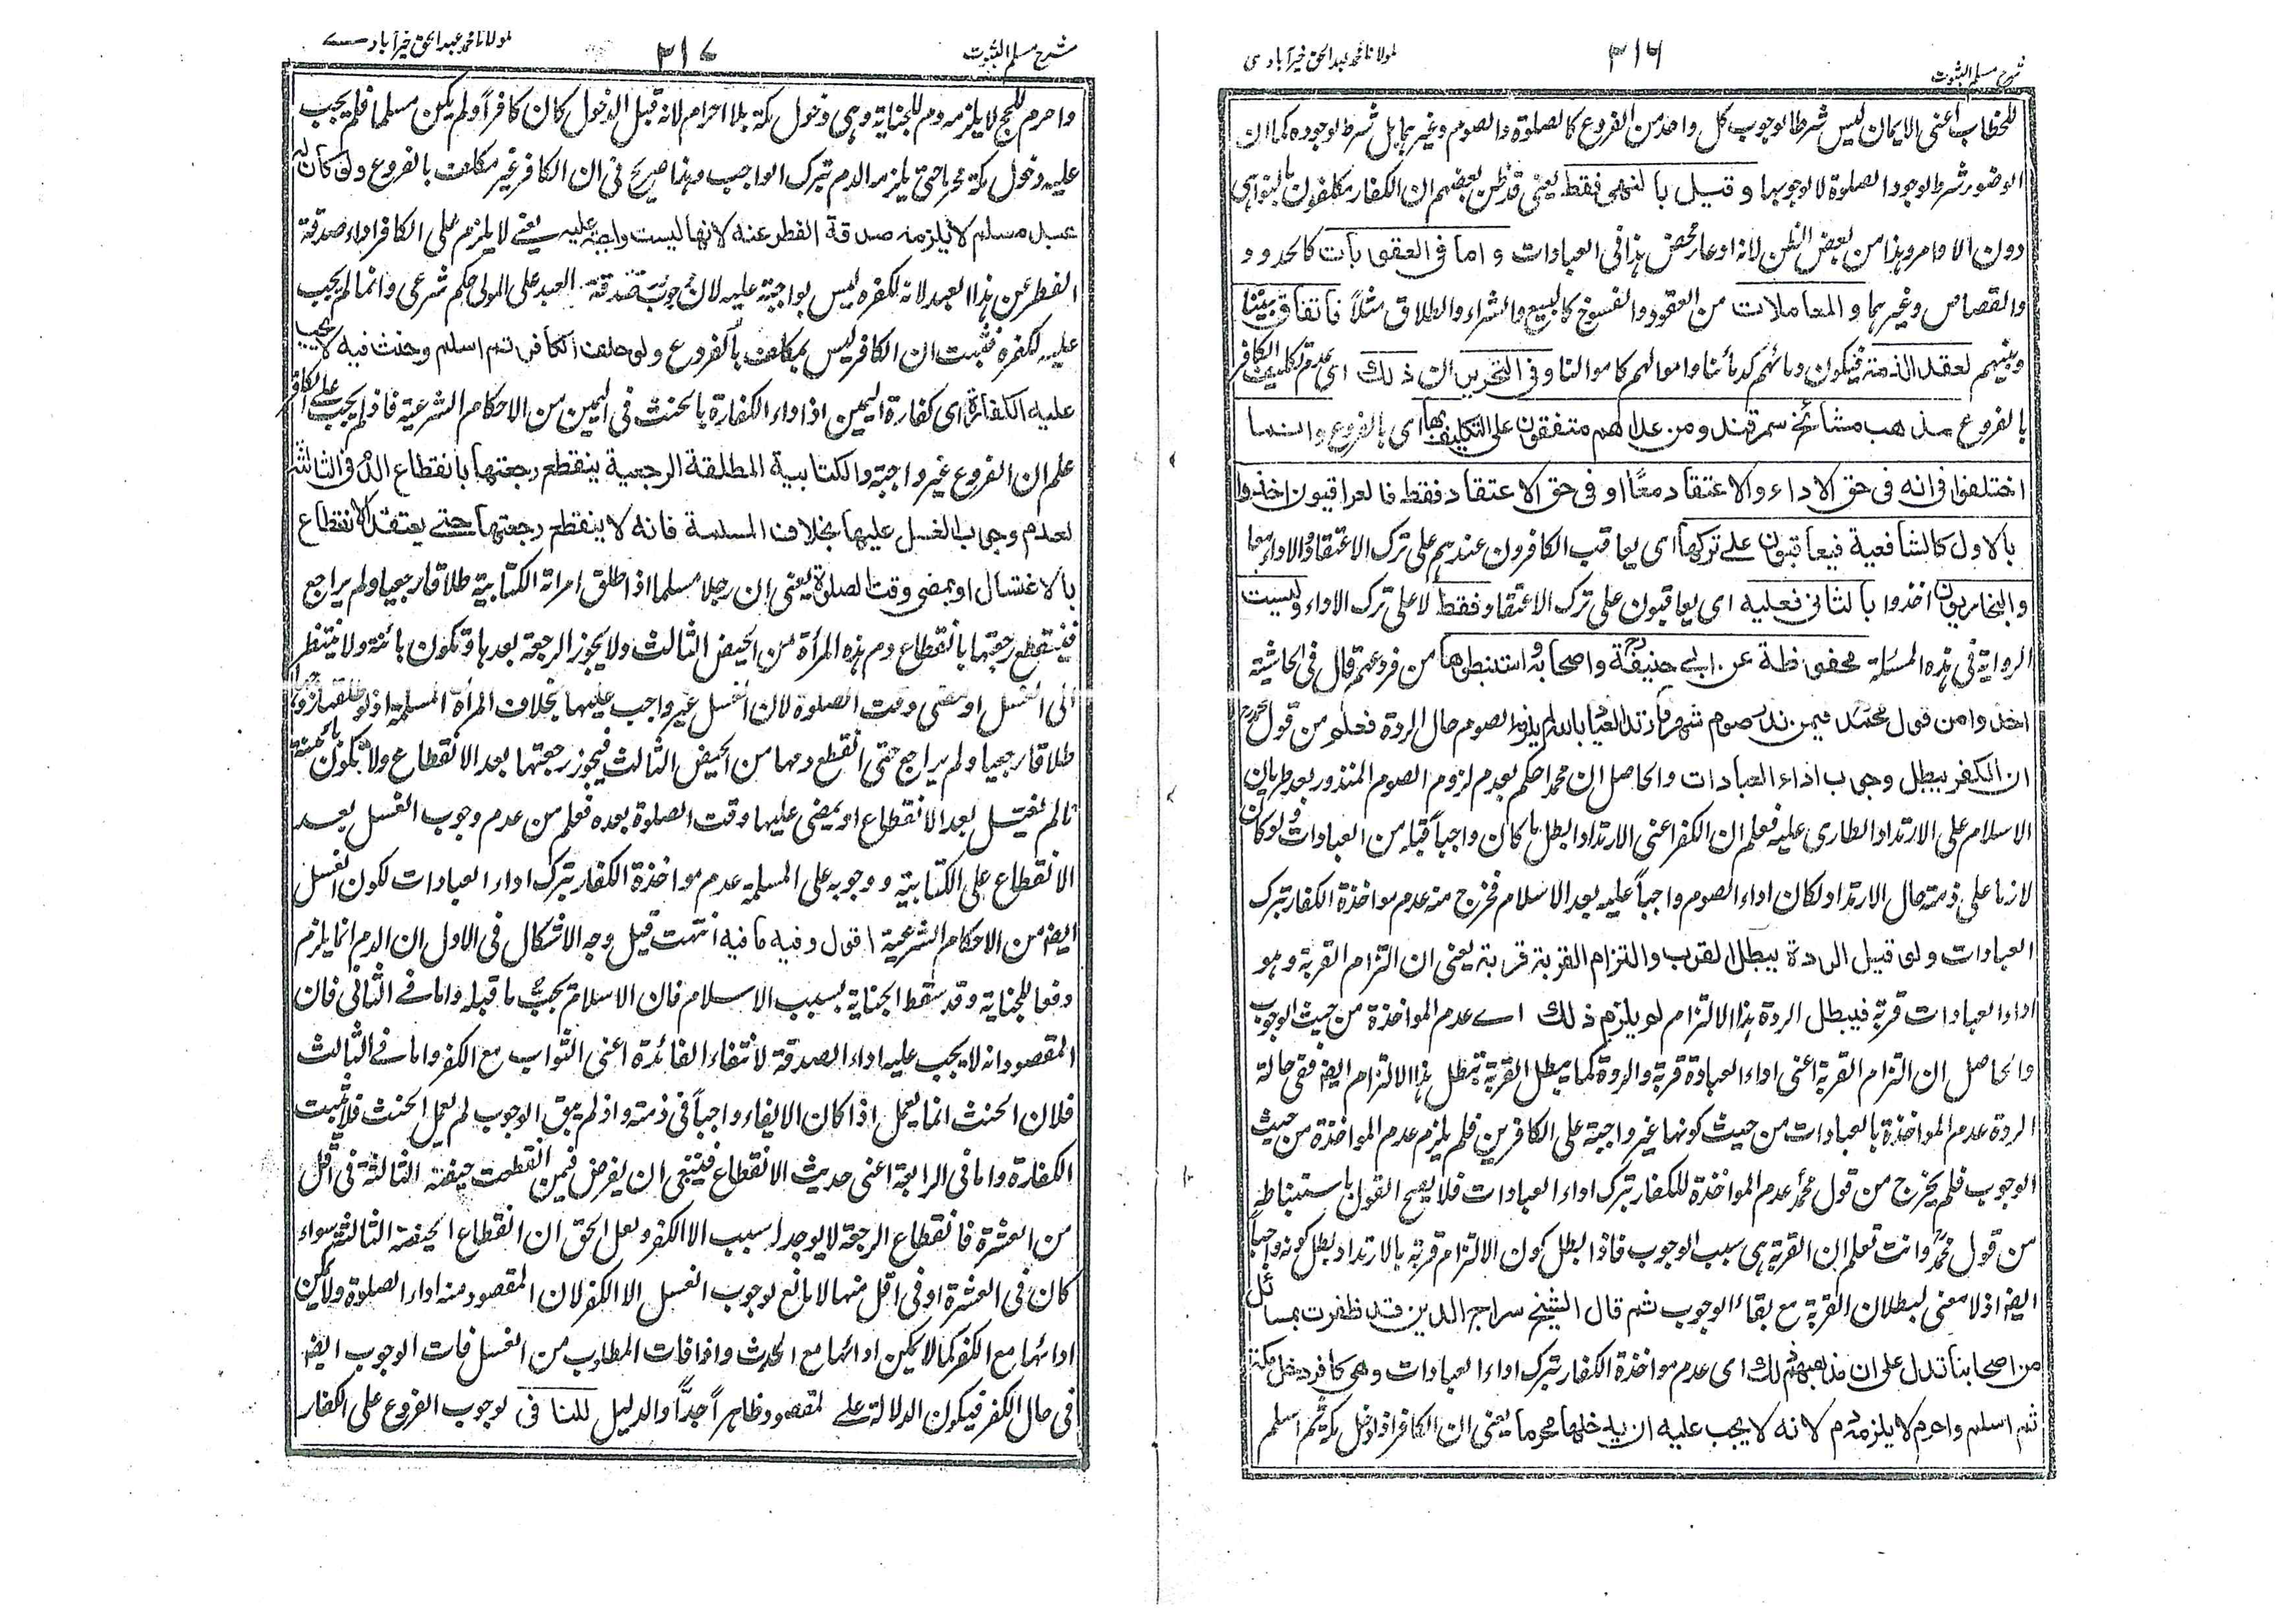 شرح مسلم الثبوت
٣١٦
مولانا محمد عبد الحق خیرآبادی
للخطاب اعنى الايمان ليس شرطا لوجوب كل واحد من الفروع كالصلوة والصوم وغيرهما بل شرط لوجوده كما ان
الوضوء شرط لوجود الصلوة لا لوجوبها وقيل بالنهى فقط يعنى قد ظن بعضهم ان الكفار مكلفون بالنواهى
دون الاوامر وهذا من بعض الظن لانه ادعاء محض هذا فى العبادات واما فى العقوبات كالحدود
والقصاص وغيرهما والمعاملات من العقود والفسوخ كالبيع والشراء والطلاق مثلاً فاتفاق بيننا
وبينهم لعقد الذمة فيكون دمائهم كدمائنا واموالهم كاموالنا وفى التحرير ان ذلك اى عدم تكليف الكافر
بالفروع مذهب مشائخ سمرقند ومن عداهم متفقون على التكليف بها اى بالفروع وانما
اختلفوا فى انه فى حق الاداء والاعتقاد معًا او فى حق الاعتقاد فقط فالعراقيون اخذوا
بالاول كالشافعية فيعاقبون على تركها اى يعاقب الكافرون عندهم على ترك الاعتقاد والاداء معا
والبخاريون اخذوا بالثانى فعليه اى يعاقبون على ترك الاعتقاد فقط لا على ترك الاداء وليست
الرواية فى هذه المسئلة محفوظة عن ابى حنيفة واصحابه واستنبطوها من فروعهم قال فى الحاشية
اخذوا من قول محمد فيمن نذر صوم شهر فارتد العياذ بالله لم يلزم الصوم حال الردة فعلم من قول محمد
ان الكفر يبطل وجوب اداء العبادات والحاصل ان محمدا حكم بعدم لزوم الصوم المنذور بعد طريان
الاسلام على الارتداد الطارى عليه فعلم ان الكفر اعنى الارتداد ابطل ما كان واجباً قبله من العبادات ولو كان
لازما على ذمته حال الارتداد لكان اداء الصوم واجباً عليه بعد الاسلام فخرج منه عدم مواخذة الكفار بترك
العبادات ولو قيل الردة يبطل القرب والتزام القربة قربة يعنى ان التزام القربة وهو
اداء العبادات قربة فيبطل الردة هذا الالتزام لم يلزم ذلك اے عدم المواخذة من حيث الوجوب
والحاصل ان التزام القربة اعنى اداء العبادة قربة والردة كما يبطل القربة يبطل هذا الالتزام ايضا ففى حالة
الردة عدم المواخذة بالعبادات من حيث كونها غير واجبة على الكافرين فلم يلزم عدم المواخذة من حيث
الوجوب فلم يخرج من قول محمد عدم المواخذة للكفار بترك اداء العبادات فلا يصح القول باستنباط
من قول محمد وانت تعلم ان القربة هى سبب الوجوب فاذا ابطل كون الالتزام قربة بالارتداد بطل كونه واجباً
ايضا اذ لا معنى لبطلان القربة مع بقاء الوجوب ثم قال الشيخ سراج الدين قد ظفرت بمسائل
من اصحابنا تدل على ان مذهبهم ذلك اى عدم مواخذة الكفار بترك اداء العبادات وهى كافر دخل مكة
ثم اسلم واحرم لا يلزمه دم لانه لا يجب عليه ان يدخلها محرما يعنى ان الكافر اذا دخل مكة ثم اسلم
شرح مسلم الثبوت
٣١٧
مولانا محمد عبد الحق خیرآبادے
واحرم للحج لا يلزمه دم للجناية وهى دخول مكة بلا احرام لانه قبل الدخول كان كافراً ولم يكن مسلما فلم يجب
عليه دخول مكة محرما حتى يلزمه الدم بترك الواجب وهذا صريح فى ان الكافر غير مكلف بالفروع ولو كان له
عبد مسلم لا يلزمه صدقة الفطر عنه لانها ليست واجبة عليه يعنے لا يلزم على الكافر اداء صدقة
الفطر عن هذا العبد لانه لكفره ليس بواجبة عليه لان وجوب صدقة العبد على المولى حكم شرعى وانما لم يجب
عليه لكفره فثبت ان الكافر ليس بمكلف بالفروع ولو حلف الكافر ثم اسلم وحنث فيه لا يجب
عليه الكفارة اى كفارة اليمين اذ اداء الكفارة بالحنث فى اليمين من الاحكام الشرعية فاذا لم يجب على الكافر
علم ان الفروع غير واجبة والكتابية المطلقة الرجعية ينقطع رجعتها بانقطاع الدم فى الثالثة
لعدم وجوب الغسل عليها بخلاف المسلمة فانه لا ينقطع رجعتها حتے يعتقد الانقطاع
بالاغتسال او بمضى وقت الصلوة يعنى ان رجلا مسلما اذا طلق امراته الكتابية طلاقا رجعيا ولم يراجع
فينقطع رجعتها بانقطاع دم هذه المرأة من الحيض الثالث ولا يجوز الرجعة بعدها وتكون بائنة ولا ينتظر
الى الغسل او مضى وقت الصلوة لان الغسل غير واجب عليها بخلاف المرأة المسلمة اذ لو طلقها زوجها
طلاقا رجعيا ولم يراجع حتى انقطع دمها من الحيض الثالث فيجوز رجعتها بعد الانقطاع ولا تكون بائنة
مالم تغتسل بعد الانقطاع او يمضى عليها وقت الصلوة بعده فعلم من عدم وجوب الغسل بعد
الانقطاع على الكتابية ووجوبه على المسلمة عدم مواخذة الكفار بترك اداء العبادات لكون الغسل
ايضا من الاحكام الشرعية اقول وفيه ما فيه انتهت قيل وجه الاشكال فى الاول ان الدم انما يلزم
دفعا للجناية وقد سقط الجناية بسبب الاسلام فان الاسلام يجب ما قبله واما فے الثانى فان
المقصود انه لا يجب عليه اداء الصدقة لانتفاء الفائدة اعنى الثواب مع الكفر واما فے الثالث
فلان الحنث انما يعمل اذا كان الايفاء واجباً فى ذمته واذ لم يبق الوجوب لم يعمل الحنث فلا يثبت
الكفارة واما فى الرابعة اعنى حديث الانقطاع فينبغى ان يفرض فيمن انقطعت حيضته الثالثة فى اقل
من العشرة فانقطاع الرجعة لا يوجد له سبب الا الكفر ولعل الحق ان انقطاع الحيضة الثالثة سواء
كان فى العشرة او فى اقل منها لا مانع لوجوب الغسل الا الكفر لان المقصود منه اداء الصلوة ولا يمكن
ادائها مع الكفر كما لا يمكن ادائها مع الحدث واذا فات المطلوب من الغسل فات الوجوب ايضا
فى حال الكفر فيكون الدلالة علے المقصود ظاهراً جداً والدليل للنافى لوجوب الفروع على الكفار